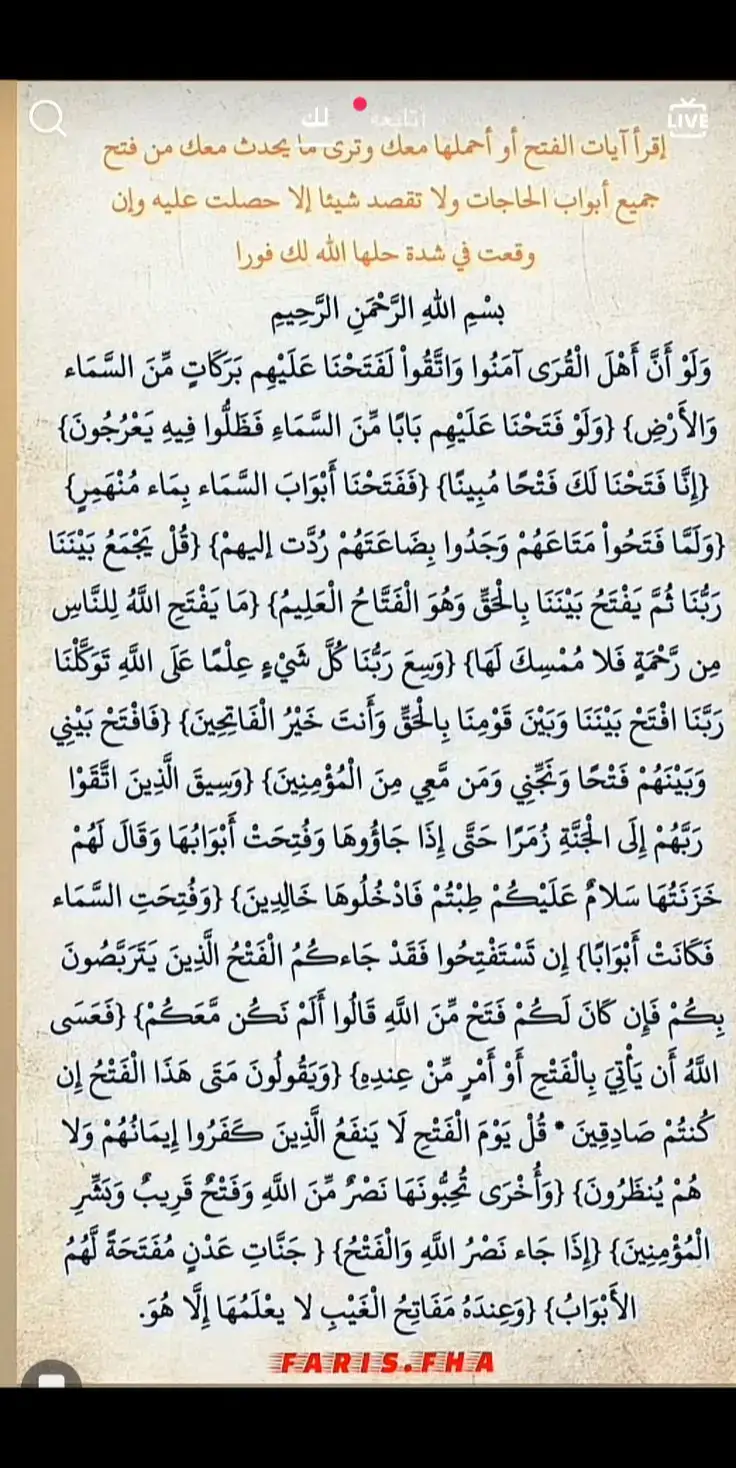 لك
LIVE
إقرأ آيات الفتح أو أحملها معك وترى ما يحدث معك من فتح
جميع أبواب الحاجات ولا تقصد شيئا إلا حصلت عليه وإن
وقعت في شدة حلها الله لك فورا
بِسْمِ اللهِ الرَّحْمَنِ الرَّحِيمِ
وَلَوْ أَنَّ أَهْلَ الْقُرَى آمَنُوا وَاتَّقُواْ لَفَتَحْنَا عَلَيْهِم بَرَكَاتٍ مِّنَ السَّمَاء
وَالأَرْضِ} {وَلَوْ فَتَحْنَا عَلَيْهِم بَابًا مِّنَ السَّمَاءِ فَظَلُّوا فِيهِ يَعْرُجُونَ}
{إِنَّا فَتَحْنَا لَكَ فَتْحًا مُبِينًا} {فَفَتَحْنَا أَبْوَابَ السَّمَاء بِمَاء مُنْهَمِرٍ}
{وَلَمَّا فَتَحُواْ مَتَاعَهُمْ وَجَدُوا بِضَاعَتَهُمْ رُدَّت إليهمْ} {قُلْ يَجْمَعُ بَيْنَنَا
رَبُّنَا ثُمَّ يَفْتَحُ بَيْنَنَا بِالْحَقِّ وَهُوَ الْفَتَّاحُ الْعَلِيمُ} {مَا يَفْتَحِ اللَّهُ لِلنَّاسِ
مِن رَّحْمَةٍ فَلا مُمْسِكَ لَهَا} {وَسِعَ رَبُّنَا كُلَّ شَيْءٍ عِلْمًا عَلَى اللَّهِ تَوَكَّلْنَا
رَبَّنَا افْتَحْ بَيْنَنَا وَبَيْنَ قَوْمِنَا بِالْحَقِّ وَأَنتَ خَيْرُ الْفَاتِحِينَ} {فَافْتَحْ بَيْنِي
وَبَيْنَهُمْ فَتْحًا وَنَجِّنِي وَمَن مَّعِي مِنَ الْمُؤْمِنِينَ} {وَسِيقَ الَّذِينَ اتَّقَوْا
رَبَّهُمْ إِلَى الْجَنَّةِ زُمَرًا حَتَّى إِذَا جَاؤُوهَا وَفُتِحَتْ أَبْوَابُهَا وَقَالَ لَهُمْ
خَزَنَتُهَا سَلامٌ عَلَيْكُمْ طِبْتُمْ فَادْخُلُوهَا خَالِدِينَ} {وَفُتِحَتِ السَّمَاء
فَكَانَتْ أَبْوَابًا} إِن تَسْتَفْتِحُوا فَقَدْ جَاءكُمُ الْفَتْحُ الَّذِينَ يَتَرَبَّصُونَ
بِكُمْ فَإِن كَانَ لَكُمْ فَتَحْ مِّنَ اللَّهِ قَالُوا أَلَمْ نَكُن مَّعَكُمْ} {فَعَسَى
اللَّهُ أَن يَأْتِيَ بِالْفَتْحِ أَوْ أَمْرٍ مِّنْ عِندِهِ} {وَيَقُولُونَ مَتَى هَذَا الْفَتْحُ إِن
كُنتُمْ صَادِقِينَ * قُلْ يَوْمَ الْفَتْحِ لَا يَنفَعُ الَّذِينَ كَفَرُوا إِيمَانُهُمْ وَلا
هُمْ يُنظَرُونَ} {وَأُخْرَى تُحِبُّونَهَا نَصْرٌ مِّنَ اللَّهِ وَفَتْحٌ قَرِيبٌ وَبَشِّرِ
الْمُؤْمِنِينَ} {إِذَا جَاء نَصْرُ اللَّهِ وَالْفَتْحُ} { جَنَّاتِ عَدْنٍ مُفَتَحَةً لَّهُمُ
الأَبْوَابُ} {وَعِندَهُ مَفَاتِحُ الْغَيْبِ لا يعْلَمُهَا إِلَّا هُوَ.
FARIS.FHA